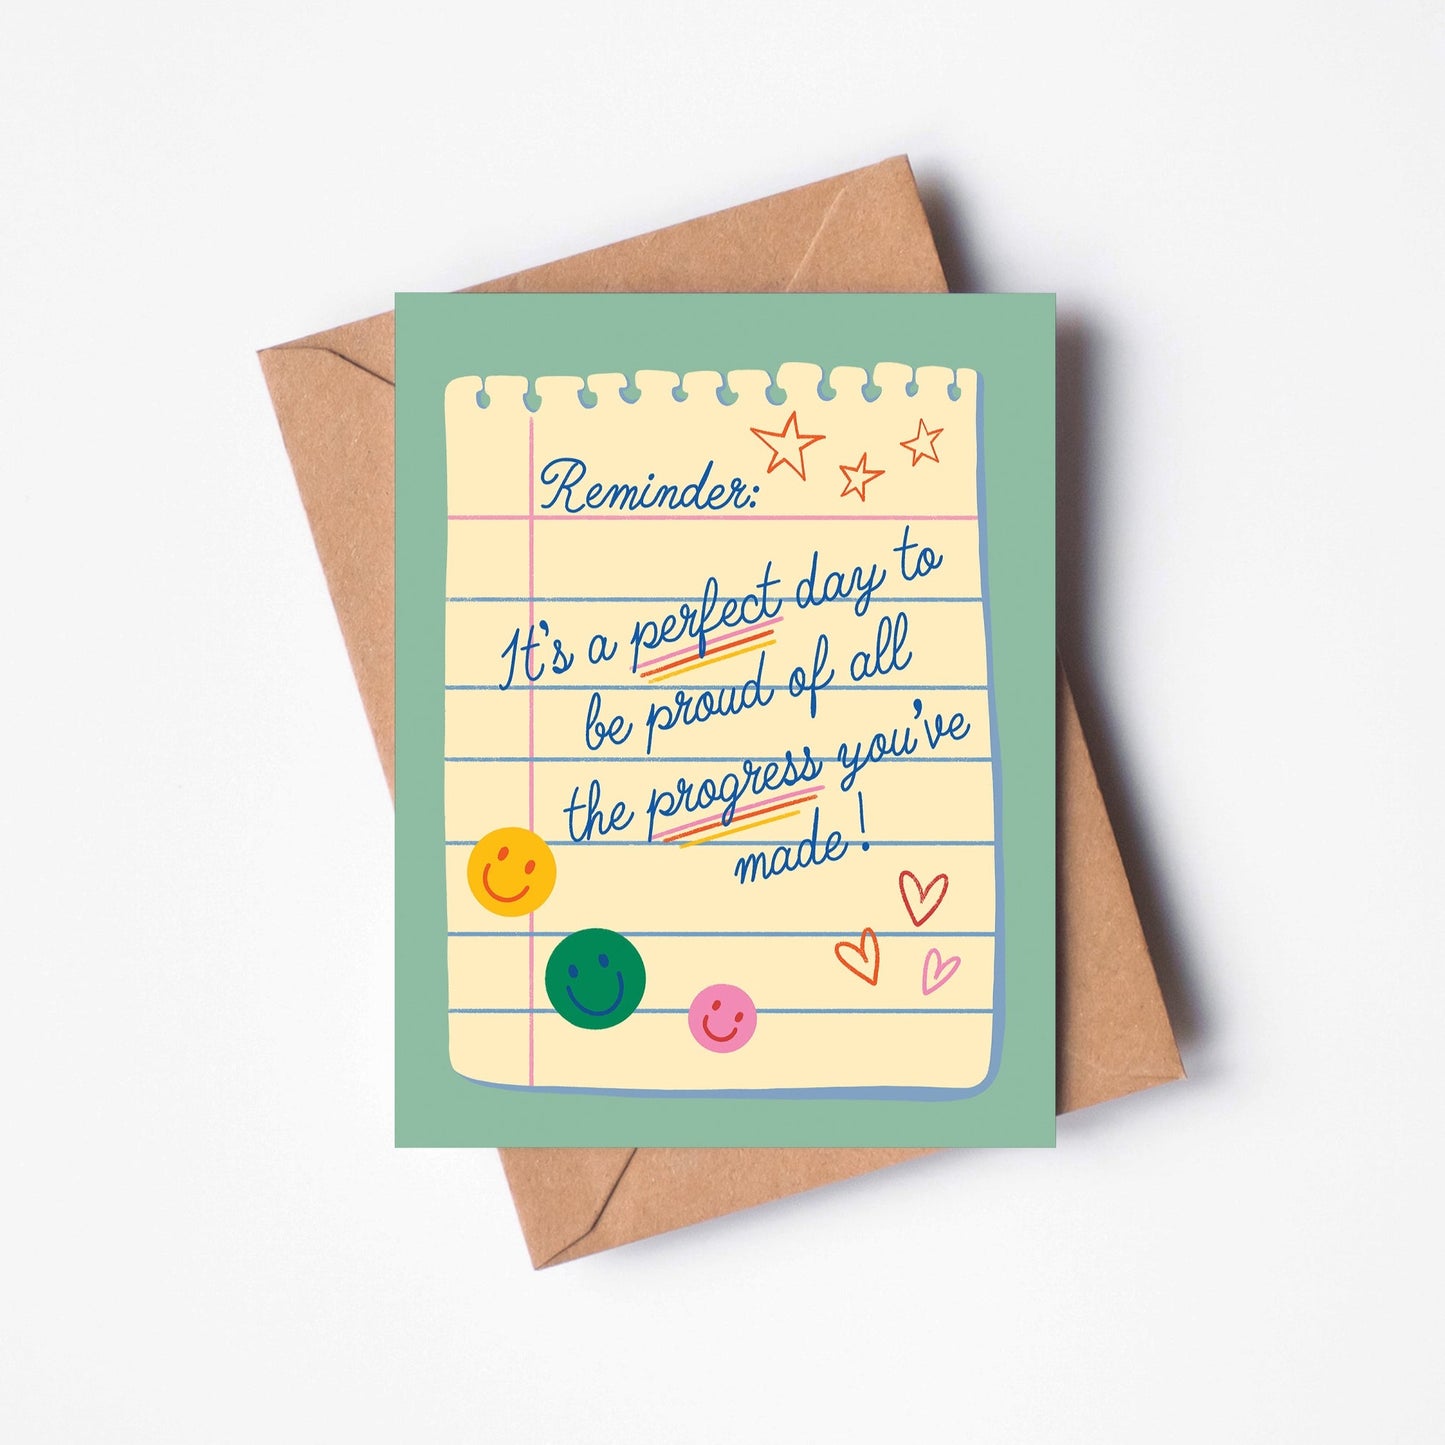 Reminder:
It's a perfect day to
be proud of all
the progress you've
made!